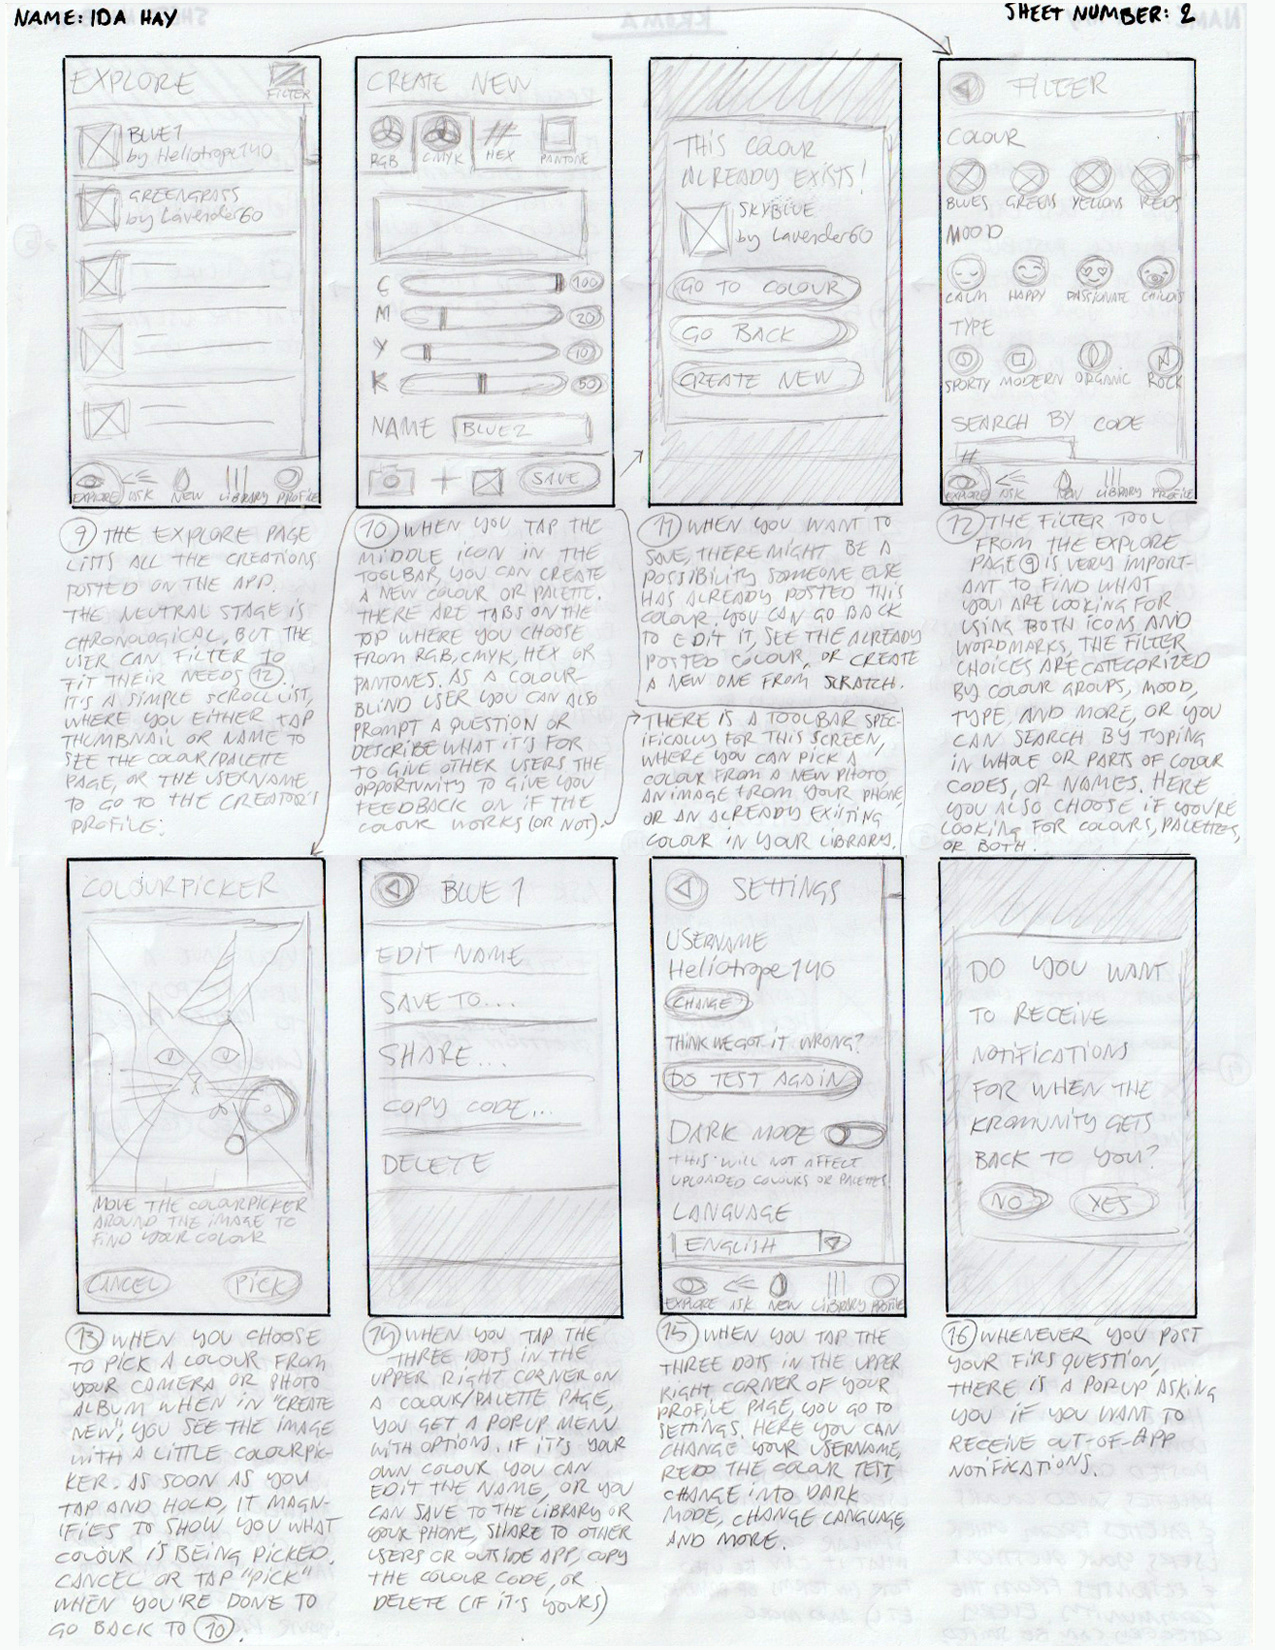 NAME: IDA HAY
SHEET NUMBER: 2
EXPLORE
FILTER
BLUE1
by Heliotrope140
GREENGRASS
by Lavender60
EXPLORE ASK NEW LIBRARY PROFILE
9 THE EXPLORE PAGE
LISTS ALL THE CREATIONS
POSTED ON THE APP.
THE NEUTRAL STAGE IS
CHRONOLOGICAL, BUT THE
USER CAN FILTER TO
FIT THEIR NEEDS 12.
IT'S A SIMPLE SCROLL LIST,
WHERE YOU EITHER TAP
THUMBNAIL OR NAME TO
SEE THE COLOUR/PALETTE
PAGE, OR THE USERNAME
TO GO TO THE CREATOR'S
PROFILE.
CREATE NEW
RGB CMYK HEX PANTONE
#
C 100
M 20
Y 10
K 50
NAME BLUE2
+ SAVE
10 WHEN YOU TAP THE
MIDDLE ICON IN THE
TOOLBAR, YOU CAN CREATE
A NEW COLOUR OR PALETTE.
THERE ARE TABS ON THE
TOP WHERE YOU CHOOSE
FROM RGB, CMYK, HEX OR
PANTONES. AS A COLOUR-
BLIND USER YOU CAN ALSO
PROMPT A QUESTION OR
DESCRIBE WHAT IT'S FOR
TO GIVE OTHER USERS THE
OPPORTUNITY TO GIVE YOU
FEEDBACK ON IF THE
COLOUR WORKS (OR NOT).
THIS COLOUR
ALREADY EXISTS!
SKYBLUE
by Lavender60
GO TO COLOUR
GO BACK
CREATE NEW
11 WHEN YOU WANT TO
SAVE, THERE MIGHT BE A
POSSIBILITY SOMEONE ELSE
HAS ALREADY POSTED THIS
COLOUR. YOU CAN GO BACK
TO EDIT IT, SEE THE ALREADY
POSTED COLOUR, OR CREATE
A NEW ONE FROM SCRATCH.
THERE IS A TOOLBAR SPEC-
IFICALLY FOR THIS SCREEN,
WHERE YOU CAN PICK A
COLOUR FROM A NEW PHOTO,
AN IMAGE FROM YOUR PHONE,
OR AN ALREADY EXISTING
COLOUR IN YOUR LIBRARY.
FILTER
COLOUR
BLUES GREENS YELLOWS REDS
MOOD
CALM HAPPY PASSIONATE CHILDISH
TYPE
SPORTY MODERN ORGANIC ROCK
SEARCH BY CODE
#
EXPLORE ASK NEW LIBRARY PROFILE
12 THE FILTER TOOL
FROM THE EXPLORE
PAGE 9 IS VERY IMPORT-
ANT TO FIND WHAT
YOU ARE LOOKING FOR.
USING BOTH ICONS AND
WORDMARKS, THE FILTER
CHOICES ARE CATEGORIZED
BY COLOUR GROUPS, MOOD,
TYPE, AND MORE, OR YOU
CAN SEARCH BY TYPING
IN WHOLE OR PARTS OF COLOUR
CODES, OR NAMES. HERE
YOU ALSO CHOOSE IF YOU'RE
LOOKING FOR COLOURS, PALETTES,
OR BOTH.
COLOURPICKER
MOVE THE COLOURPICKER
AROUND THE IMAGE TO
FIND YOUR COLOUR
CANCEL PICK
13 WHEN YOU CHOOSE
TO PICK A COLOUR FROM
YOUR CAMERA OR PHOTO
ALBUM WHEN IN "CREATE
NEW", YOU SEE THE IMAGE
WITH A LITTLE COLOURPIC-
KER. AS SOON AS YOU
TAP AND HOLD, IT MAGN-
IFIES TO SHOW YOU WHAT
COLOUR IS BEING PICKED.
CANCEL OR TAP "PICK"
WHEN YOU'RE DONE TO
GO BACK TO 10.
BLUE 1
EDIT NAME
SAVE TO...
SHARE...
COPY CODE...
DELETE
14 WHEN YOU TAP THE
THREE DOTS IN THE
UPPER RIGHT CORNER ON
A COLOUR/PALETTE PAGE,
YOU GET A POPUP MENU
WITH OPTIONS. IF IT'S YOUR
OWN COLOUR YOU CAN
EDIT THE NAME, OR YOU
CAN SAVE TO THE LIBRARY OR
YOUR PHONE, SHARE TO OTHER
USERS OR OUTSIDE APP, COPY
THE COLOUR CODE, OR
DELETE (IF IT'S YOURS)
SETTINGS
USERNAME
Heliotrope140
CHANGE
THINK WE GOT IT WRONG?
DO TEST AGAIN
DARK MODE
THIS WILL NOT AFFECT
UPLOADED COLOURS OR PALETTES.
LANGUAGE
ENGLISH
EXPLORE ASK NEW LIBRARY PROFILE
15 WHEN YOU TAP THE
THREE DOTS IN THE UPPER
RIGHT CORNER OF YOUR
PROFILE PAGE, YOU GO TO
SETTINGS. HERE YOU CAN
CHANGE YOUR USERNAME,
REDO THE COLOUR TEST,
CHANGE INTO DARK
MODE, CHANGE LANGUAGE,
AND MORE.
DO YOU WANT
TO RECEIVE
NOTIFICATIONS
FOR WHEN THE
KROMUNITY GETS
BACK TO YOU?
NO YES
16 WHENEVER YOU POST
YOUR FIRST QUESTION,
THERE IS A POPUP ASKING
YOU IF YOU WANT TO
RECEIVE OUT-OF-APP
NOTIFICATIONS.